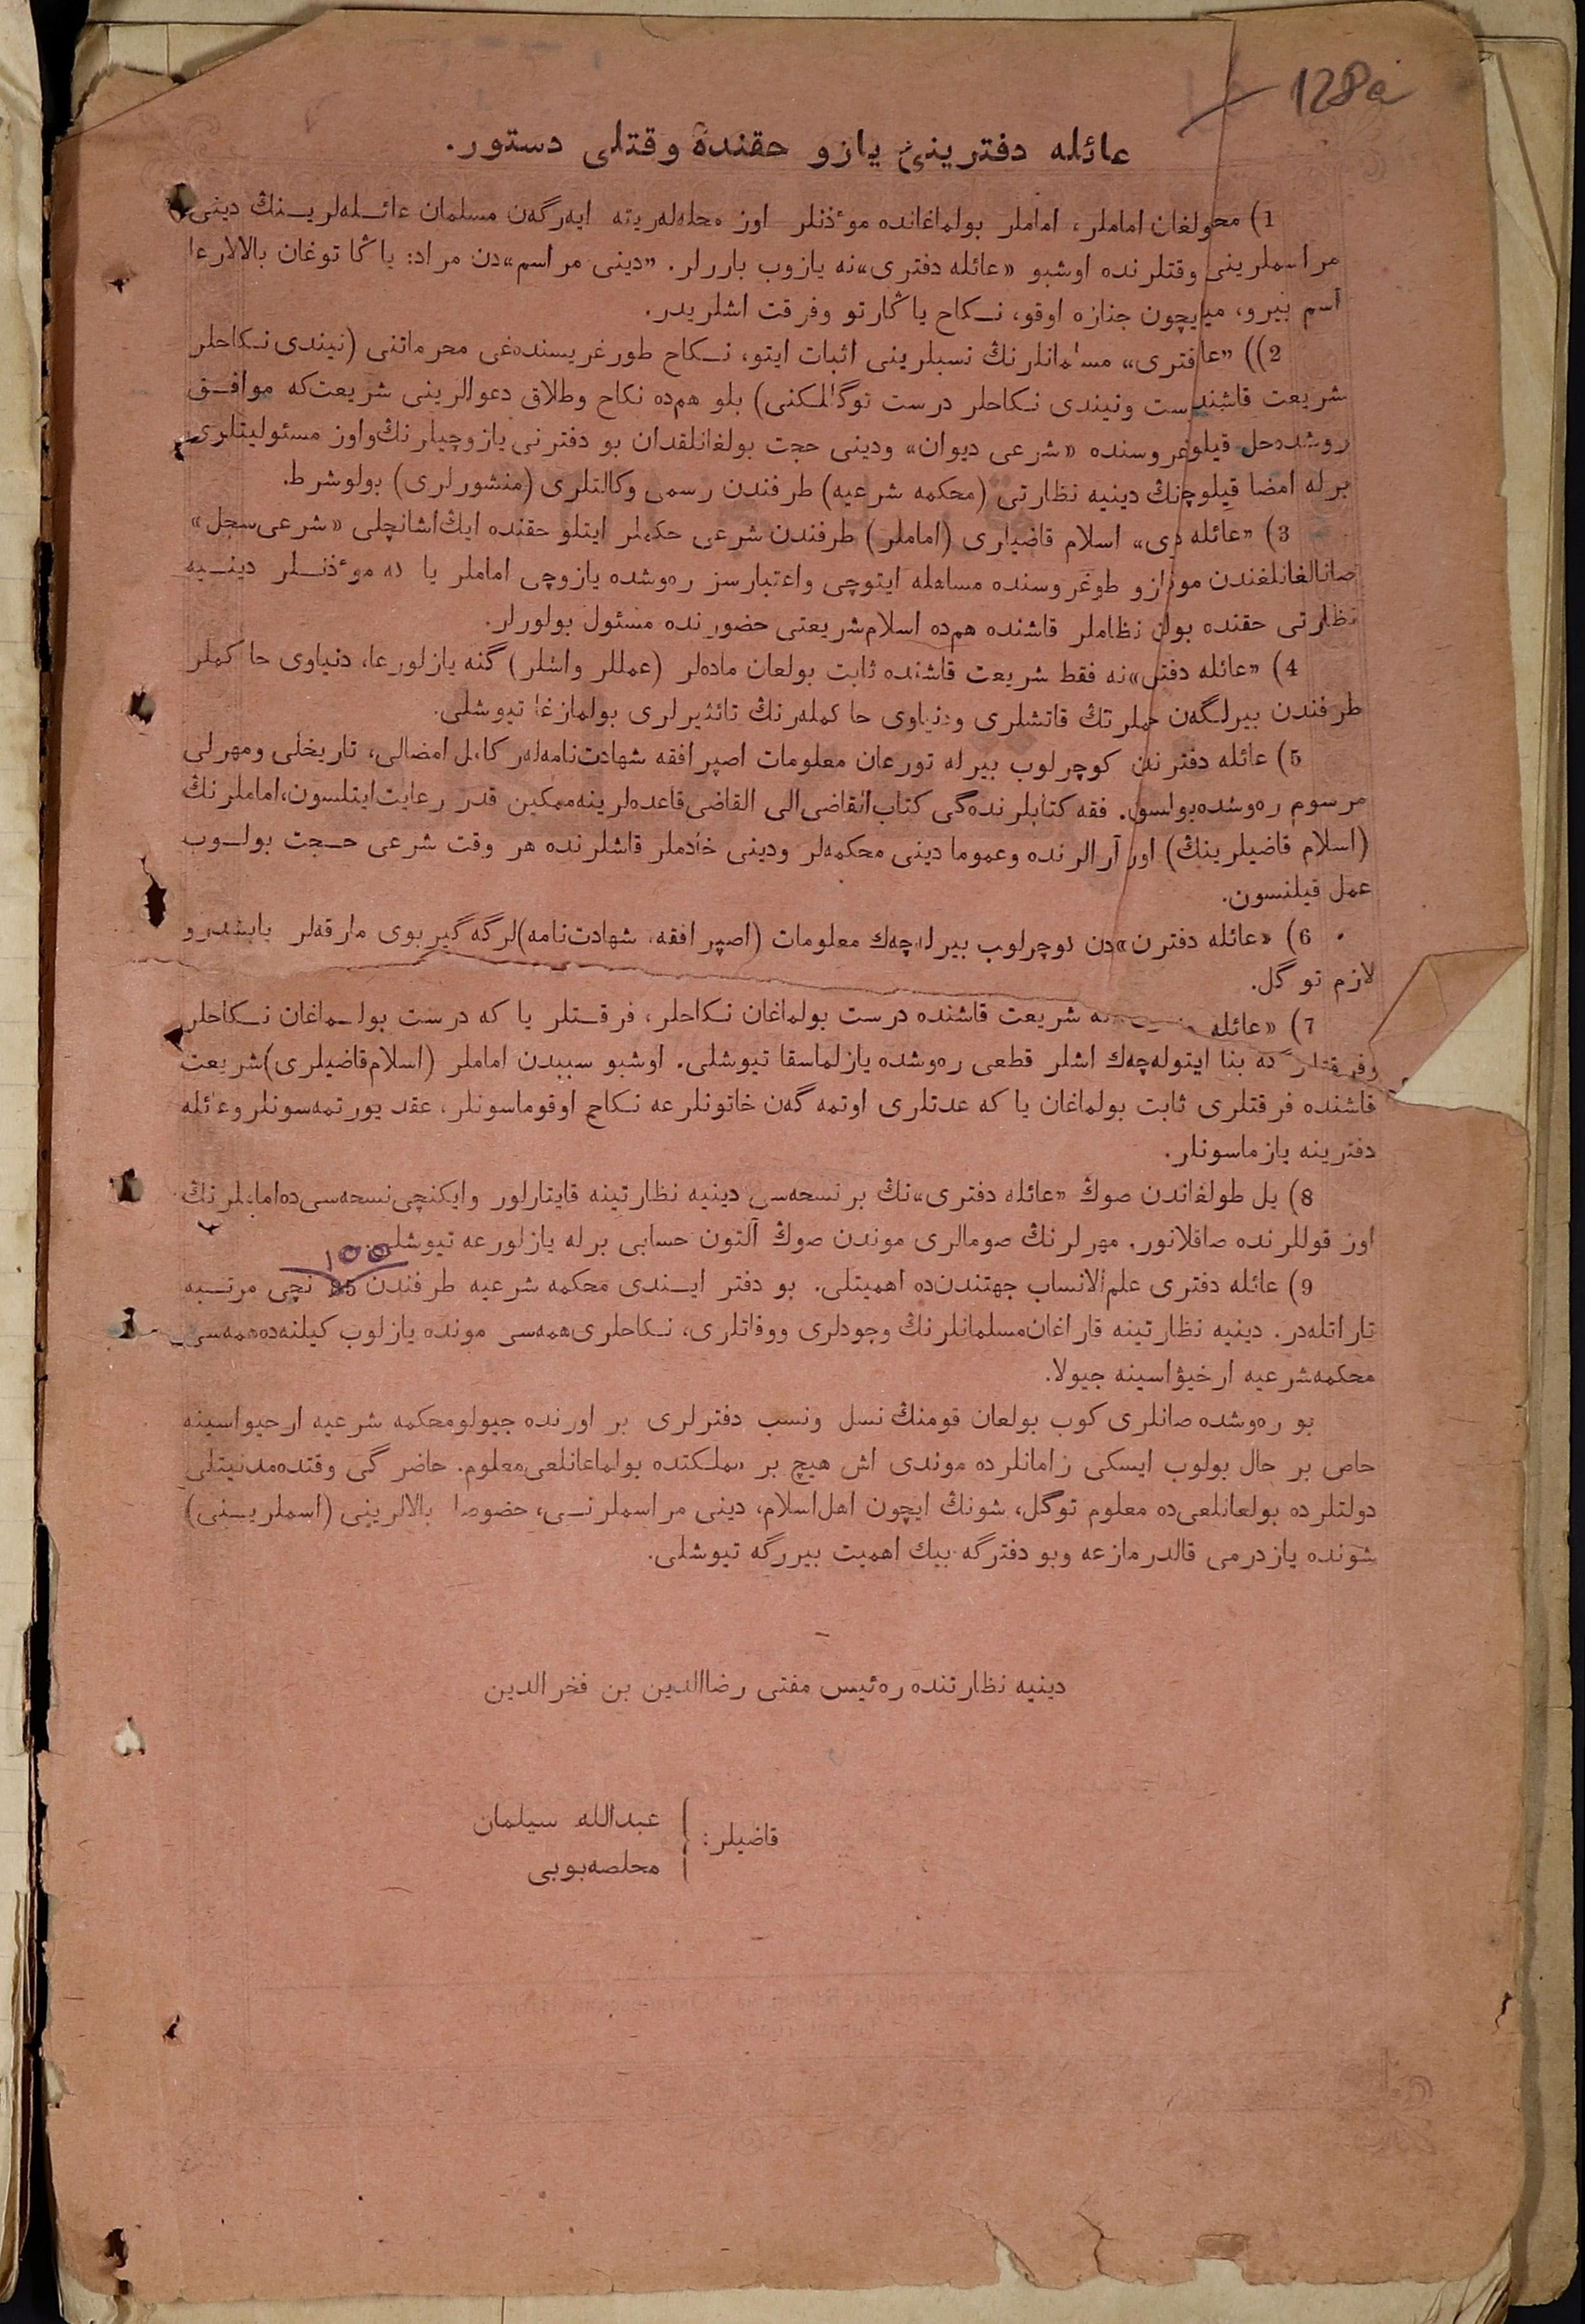 128a
عائله دفترینی یازو حقنده وقتلی دستور.
1) محولغان اماملر، اماملر بولماغانده موٴذنلر اوز محله‌لەریته ایەرگەن مسلمان عائـله‌لریـنڭ دینی
مراسملرینی وقتلرنده اوشبو «عائله دفتری»نه یازوب باررلر. «دینی مراسم»دن مراد: یاڭا توغان بالالارغا
اسم بیرو، میایچون جنازه اوقو، نـکاح یاڭارتو وفرقت اشلریدر.
2)) «عافتری» مسلمانلرنڭ نسبلرینی اثبات ایتو، نـکاح طورغریسنده‌غی محرماتنی (نیندی نـکاحلر
شریعت قاشندست ونیندی نـکاحلر درست توگللکنی) بلو هم‌ده نکاح وطلاق دعوالرینی شریعت‌که موافـق
روشده‌حل قیلوغروسنده «شرعی دیوان» ودینی حجت بولغانلقدان بو دفترنی یازوچیلرنڭ‌واوز مسئولیتلری
برله امضا قیلوچنڭ دینیه نظارتی (محکمه شرعیه) طرفندن رسمی وکالتلری (منشورلری) بولوشرط.
3) «عائله ری» اسلام قاضیلری (اماملر) طرفندن شرعی حکملر ایتلو حقنده ایڭ‌اشانچلی «شرعی‌سجل»
صانالغانلغندن مونازو طوغروسنده مساهله ایتوچی واعتبارسز ره‌وشده یازوچی اماملر یا که موٴذنـلر دینـیه
نظارتی حقنده بولن نظاملر قاشنده هم‌ده اسلام‌شریعتی حضورنده مسئول بولورلر.
4) «عائله دفتری»نه فقط شریعت قاشنده ثابت بولغان ماده‌لر (عمللر واشلر) گنه یازلورغا، دنیاوی حاکملر
طرفندن بیرلگەن حلرتڭ قاتشلری ودنیاوی حاکمله‌رنڭ تائثیرلری بولمازغا تیوشلی.
5) عائله دفترندن کوچرلوب بیرله تورغان معلومات اصپرافقه شهادت‌نامه‌لەر کامل امضالی، تاریخلی ومهرلی
مرسوم ره‌وشده‌بولسون. فقه کتابلرنده‌گی کتاب‌القاضی‌الی القاضی‌قاعده‌لرینه‌ممکین قدر رعایت‌ایتلسون،اماملرنڭ
(اسلام قاضیلرینڭ) اوز آرالرنده وعموما دینی محکمه‌لر ودینی خادملر قاشلرنده هر وقت شرعی حـجت بولـوب
عمل قیلنسون.
6) «عائله دفترن»دن کوچرلوب بیرله‌چەك معلومات (اصپرافقه، شهادت‌نامه)لرگه گیربوی مارقه‌لر یابشدرو
لازم توگل.
7) «عائله نه شریعت قاشنده درست بولماغان نـکاحلر، فرقـتلر یا که درست بولـماغان نـکاحلر
وفرقتلرگه بنا ایتوله‌چەك اشلر قطعی ره‌وشده یازلماسقا تیوشلی. اوشبو سببدن اماملر (اسلام‌قاضیلری)شریعت
قاشنده فرقتلری ثابت بولماغان یا که عدتلری اوتمه‌گەن خاتونلرغه نـکاح اوقوماسونلر، عقد یورتمەسونلروعائله
دفترینه یازماسونلر.
8) یل طولغاندن صوڭ «عائله دفتری»نڭ برنسخه‌سی دینیه نظارتینه قایتارلور وایکنچی‌نسخه‌سی‌ده‌اماملرنڭ
اوز قوللرنده صاقلانور. مهرلرنڭ صومالری موندن صوڭ آلتون حسابی برله یازلورغه تیوشلی.
١٥٥
9) عائله دفتری علم‌الانساب جهتندن‌ده اهمیتلی. بو دفتر ایـندی محکمه شرعیه طرفندن 95 نچی مرتـبه
تاراتله‌در. دینیه نظارتینه قاراغان‌مسلمانلرنڭ وجودلری ووفاتلری، نـکاحلری‌همه‌سی مونده یازلوب کیلنه‌ده‌همه‌سی
محکمه‌شرعیه ارخیۋاسینه جیولا.
بو ره‌وشده صانلری کوب بولغان قومنڭ نسل ونسب دفترلری بر اورنده جیولومحکمه شرعیه ارحیواسینه
خاص بر حال بولوب ایسکی زامانلرده موندی اش هیچ بر مملـکتده بولماغانلغی‌معلوم. حاضرگی وقتده‌مدنیتلی
دولتلرده بولغانلغی‌ده معلوم توگل، شونڭ ایچون اهل‌اسلام، دینی مراسملرنـی، خضوصا بالالرینی (اسملریـنی)
شونده یازدرمی قالدرمازغه وبو دفترگه بیك اهمیت بیررگه تیوشلی.
دینیه نظارتنده ره‌ئیس مفتی رضاالدین بن فخرالدین
قاضیلر:
عبدالله سیلمان
محلصه‌بوبی